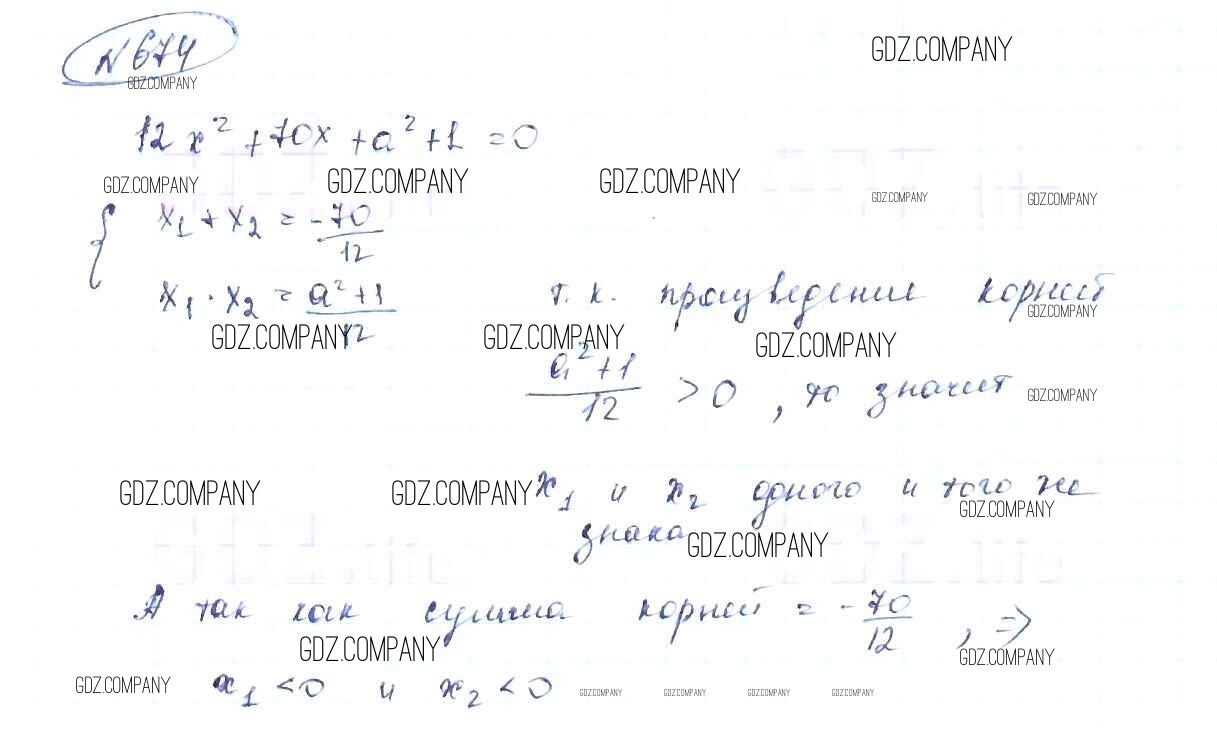 № 674
GDZ.COMPANY
GDZ.COMPANY
12x² + 70x + a² + 1 = 0
GDZ.COMPANY GDZ.COMPANY GDZ.COMPANY GDZ.COMPANY GDZ.COMPANY
{ x₁ + x₂ = -70/12
x₁ · x₂ = a² + 1/12 т.к. произведение корней
GDZ.COMPANY
GDZ.COMPANY GDZ.COMPANY GDZ.COMPANY
a² + 1/12 > 0, то значит
GDZ.COMPANY
GDZ.COMPANY GDZ.COMPANY x₁ и x₂ одного и того же
GDZ.COMPANY
знака GDZ.COMPANY
А так как сумма корней = -70/12, ⇒
GDZ.COMPANY GDZ.COMPANY
GDZ.COMPANY x₁ < 0 и x₂ < 0 GDZ.COMPANY GDZ.COMPANY GDZ.COMPANY GDZ.COMPANY